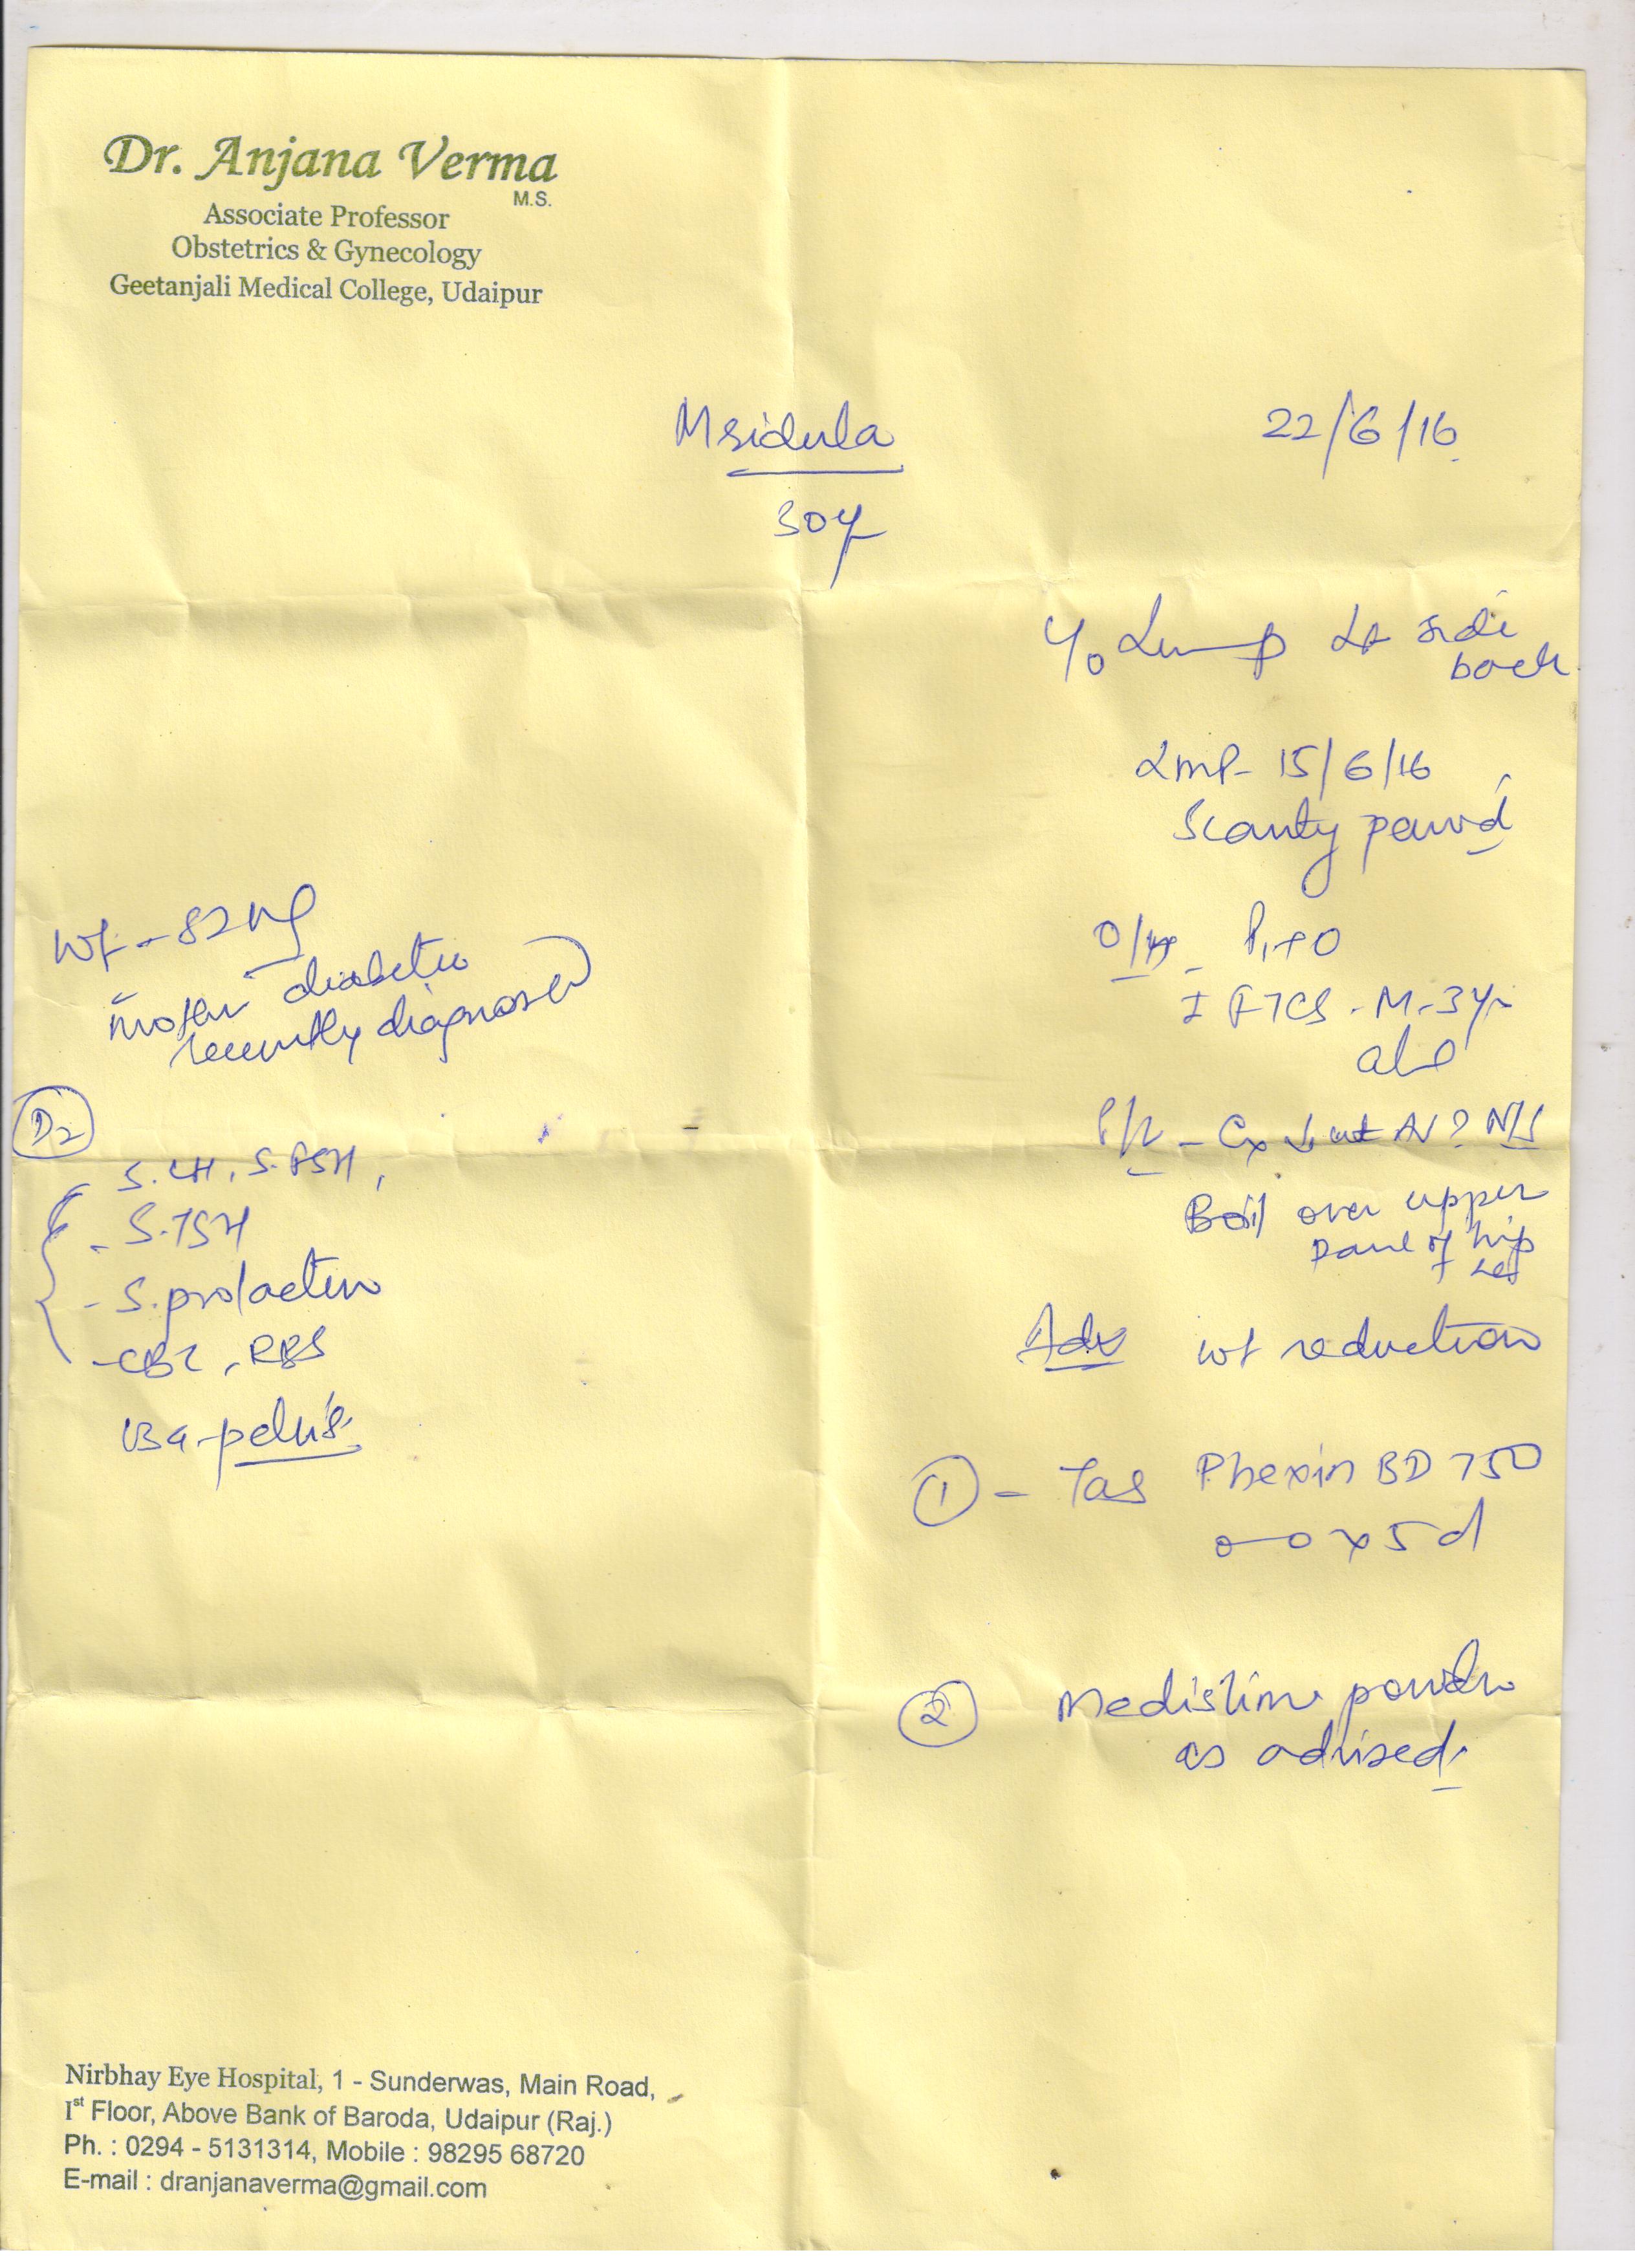 Dr. Anjana Verma
M.S.
Associate Professor
Obstetrics & Gynecology
Geetanjali Medical College, Udaipur
Mridula
22/6/16
30y
c/o Lump Lt side
back
LMP- 15/6/16
Scanty period
O/H - P1+0
I FTCS - M - 3yr
P/V - Cx ut AV ? N/S
Boil over upper
part of hip
Adv wt reduction
① - Tab Phexin BD 750
0-0 x 5d
② Medislim powder
as advised.
Wt - 82kg
mother diabetic
recently diagnosed
D2
S.LH, S.FSH,
- S.TSH
- S.prolactin
- CBC, RBS
pelvis
Nirbhay Eye Hospital, 1 - Sunderwas, Main Road,
Ist Floor, Above Bank of Baroda, Udaipur (Raj.)
Ph. : 0294 - 5131314, Mobile : 98295 68720
E-mail : dranjanaverma@gmail.com